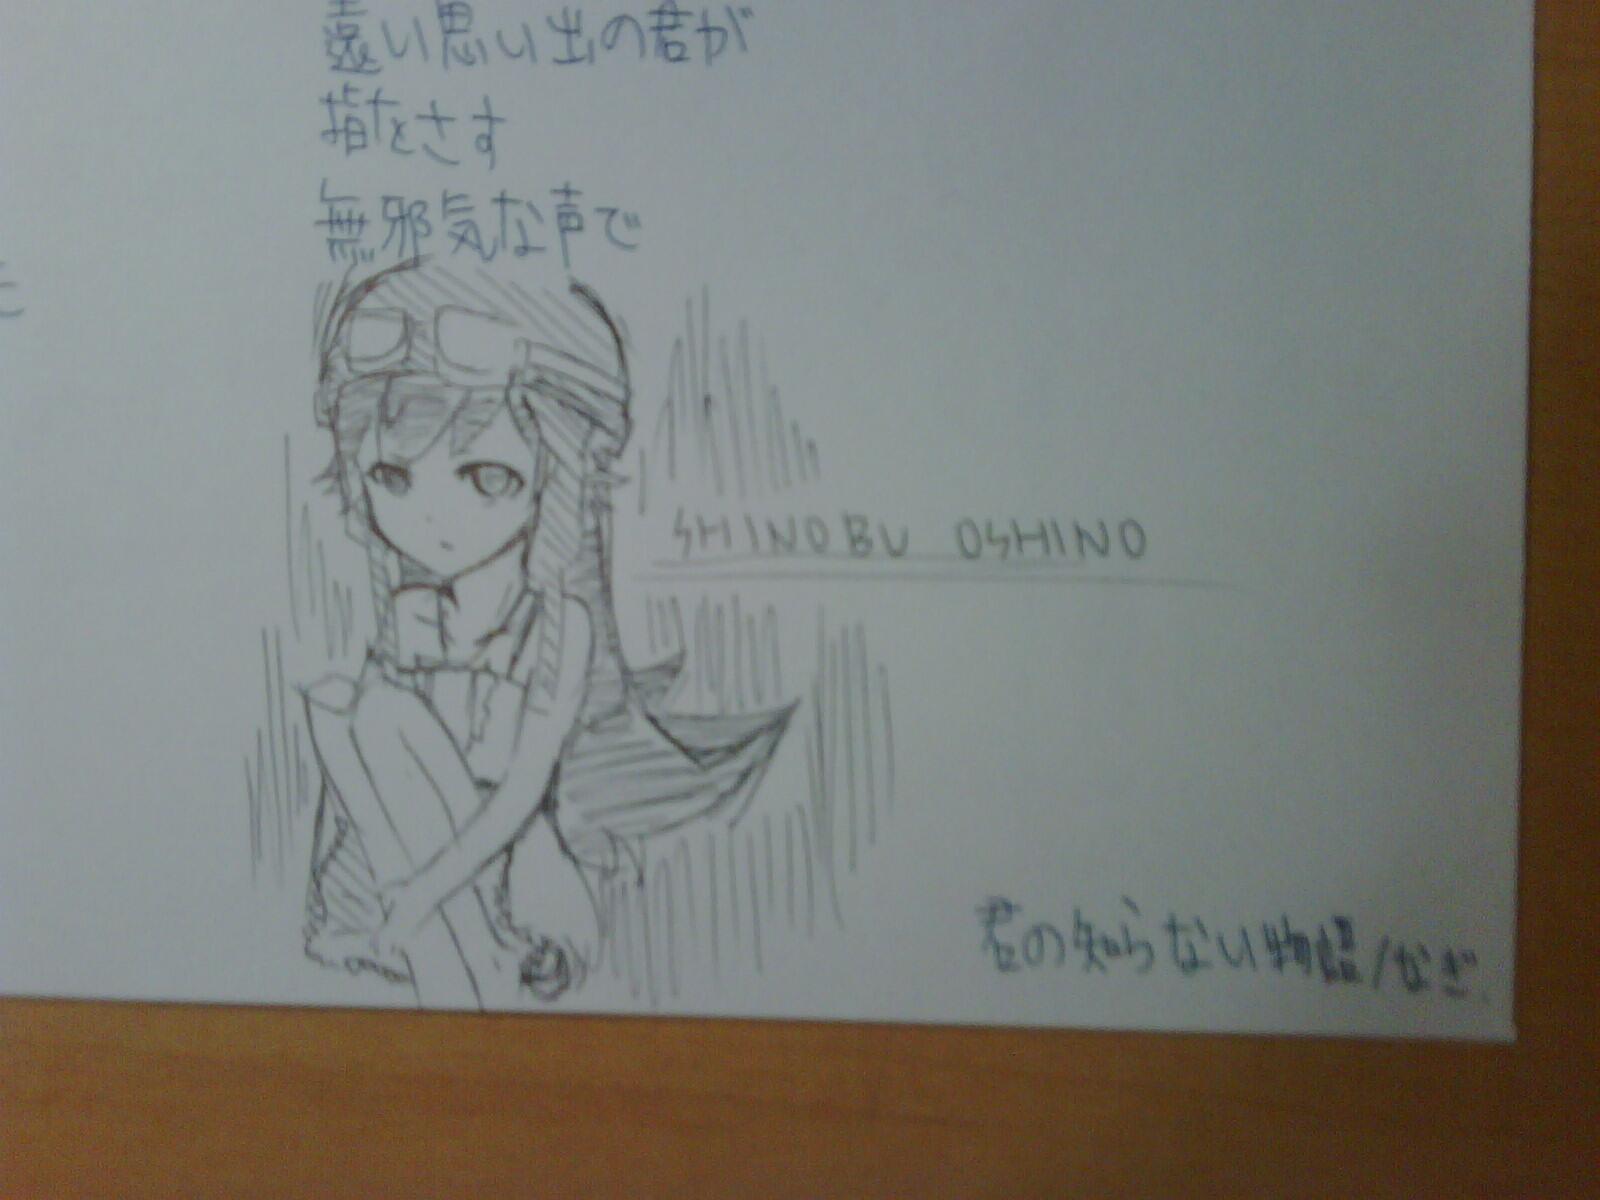 遠い思い出の君が
指をさす
無邪気な声で
SHINOBU OSHINO
君の知らない物語/なぎ